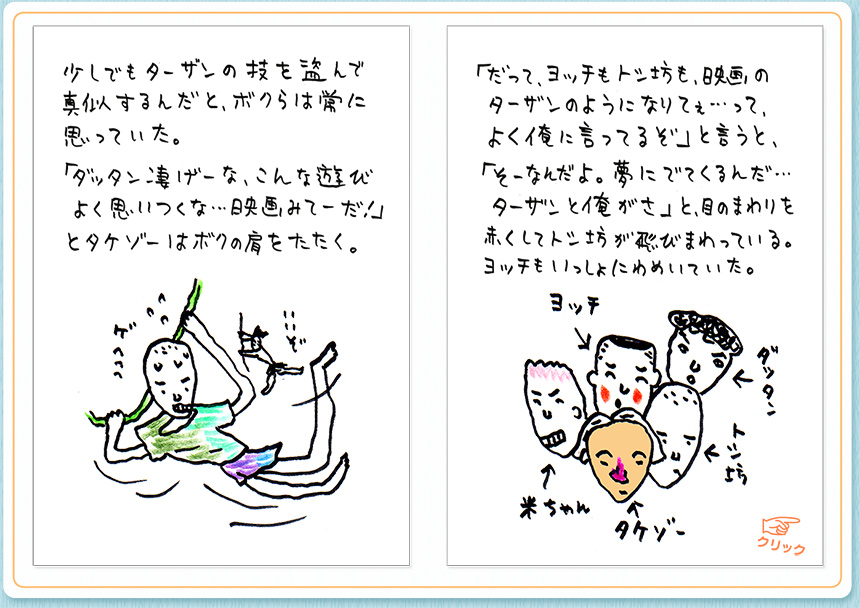 少しでもターザンの技を盗んで
真似するんだと、ボクらは常に
思っていた。
「ダッタン凄げーな、こんな遊び
よく思いつくな…映画みてーだ!」
とタケゾーはボクの肩をたたく。
ゲ
いいぞ
「だって、ヨッチもトシ坊も、映画の
ターザンのようになりてぇ…って、
よく俺に言ってるぞ」と言うと、
「そーなんだよ。夢にでてくるんだ…
ターザンと俺がさ」と、目のまわりを
赤くしてトシ坊が飛びまわっている。
ヨッチもいっしょにわめいていた。
ヨッチ
ダッタン
トシ坊
米ちゃん
タケゾー
クリック